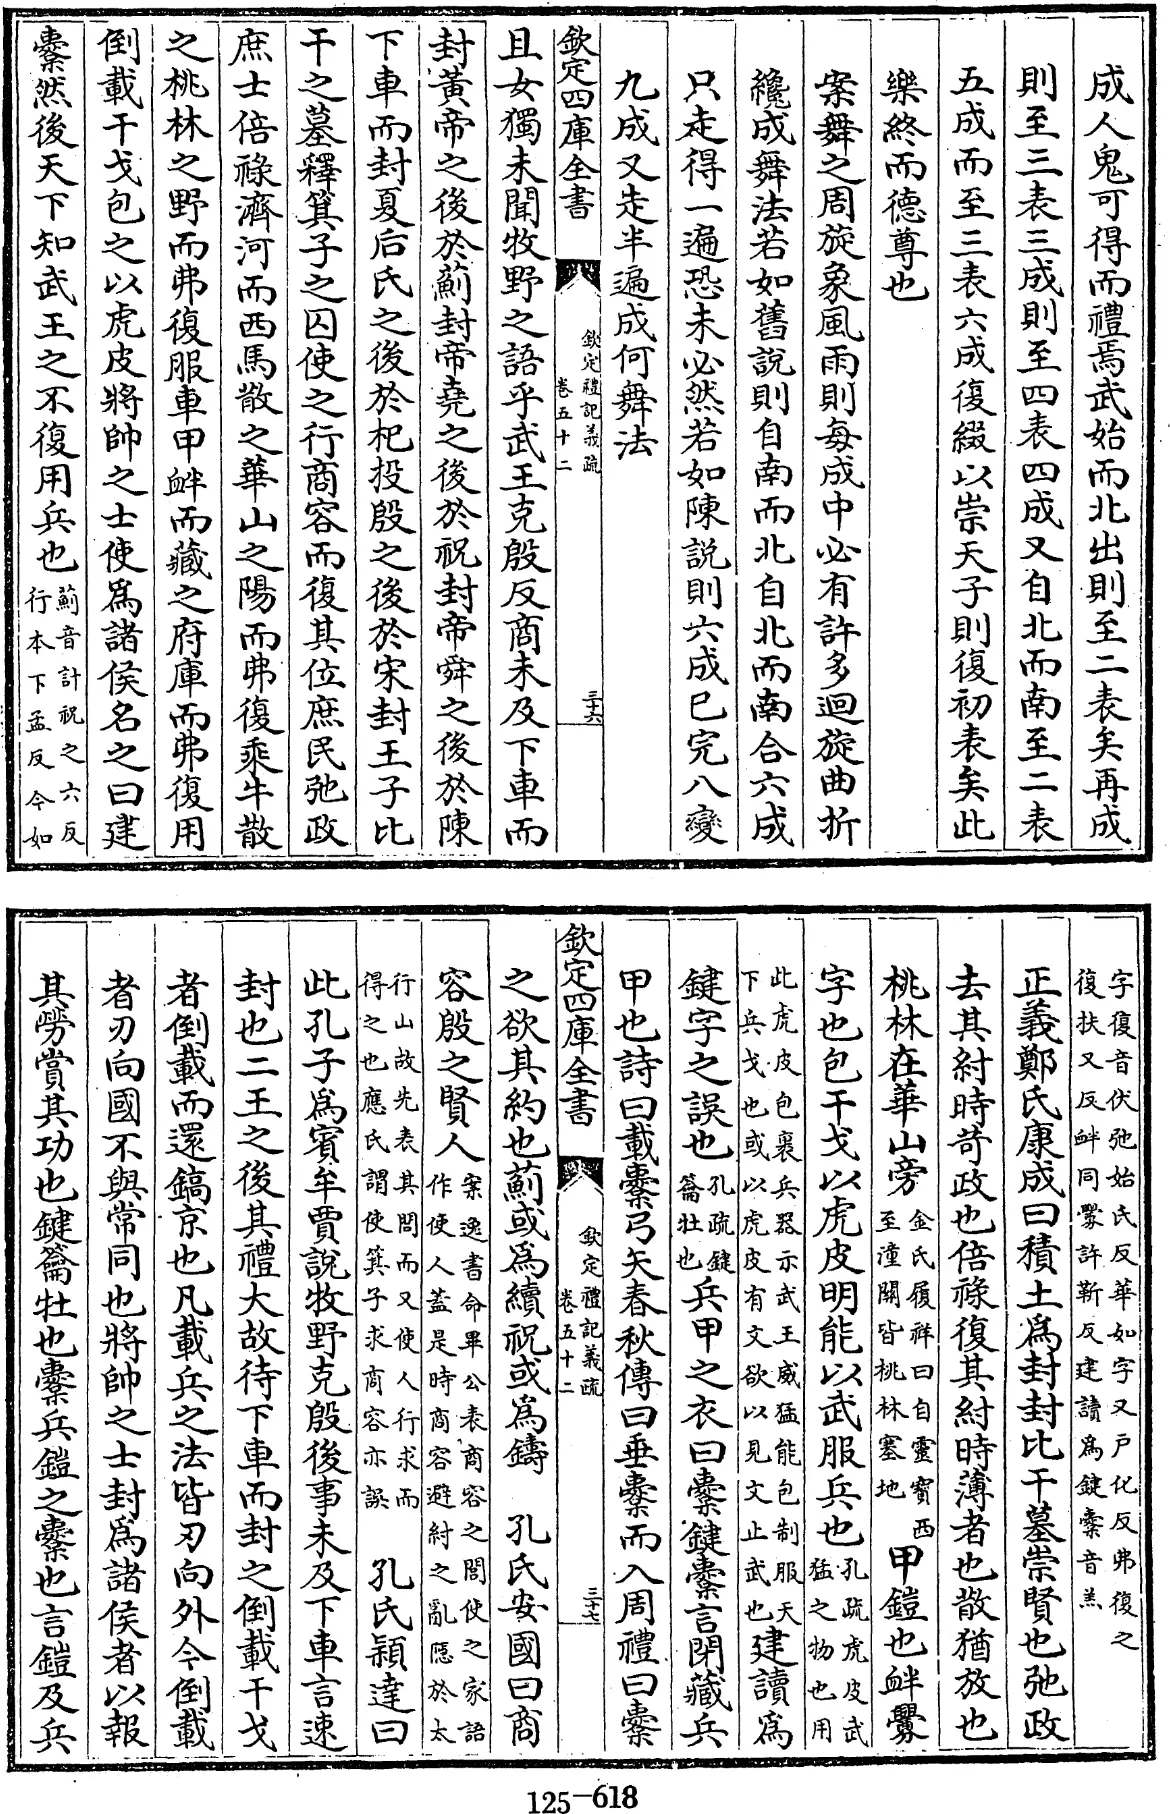 成人鬼可得而禮焉武始而北出則至二表矣再成
則至三表三成則至四表四成又自北而南至二表
五成而至三表六成復綴以崇天子則復初表矣此
樂終而德尊也
案舞之周旋象風雨則每成中必有許多迴旋曲折
纔成舞法若如舊說則自南而北自北而南合六成
只走得一遍恐未必然若如陳說則六成已完八變
九成又走半遍成何舞法
欽定四庫全書
欽定禮記義疏
卷五十二
三十六
且女獨未聞牧野之語乎武王克殷反商未及下車而
封黃帝之後於薊封帝堯之後於祝封帝舜之後於陳
下車而封夏后氏之後於杞投殷之後於宋封王子比
干之墓釋箕子之囚使之行商容而復其位庶民弛政
庶士倍祿濟河而西馬散之華山之陽而弗復乘牛散
之桃林之野而弗復服車甲衅而藏之府庫而弗復用
倒載干戈包之以虎皮將帥之士使為諸侯名之曰建
櫜然後天下知武王之不復用兵也
薊音計祝之六反
行本下孟反今如
字復音伏弛始氏反華如字又戶化反弗復之
復扶又反衅同釁許靳反建讀為鍵櫜音羔
正義鄭氏康成曰積土為封封比干墓崇賢也弛政
去其紂時苛政也倍祿復其紂時薄者也散猶放也
桃林在華山旁
金氏履祥曰自靈寶西
至潼關皆桃林塞地
甲鎧也衅釁
字也包干戈以虎皮明能以武服兵也
孔疏虎皮武
猛之物也用
此虎皮包裹兵器示武王威猛能包制服天
下兵戈也或以虎皮有文欲以見文止武也
建讀為
鍵字之誤也
孔疏鍵
籥牡也
兵甲之衣曰櫜鍵櫜言閉藏兵
甲也詩曰載櫜弓矢春秋傳曰垂櫜而入周禮曰櫜
欽定四庫全書
欽定禮記義疏
卷五十二
三十七
之欲其約也薊或為續祝或為鑄　孔氏安國曰商
容殷之賢人
案逸書命畢公表商容之閭使之家語
作使人蓋是時商容避紂之亂隱於太
行山故先表其閭而又使人行求而
得之也應氏謂使箕子求商容亦誤
孔氏穎達曰
此孔子為賓牟賈說牧野克殷後事未及下車言速
封也二王之後其禮大故待下車而封之倒載干戈
者倒載而還鎬京也凡載兵之法皆刃向外今倒載
者刃向國不與常同也將帥之士封為諸侯者以報
其勞賞其功也鍵籥牡也櫜兵鎧之櫜也言鎧及兵
125-618